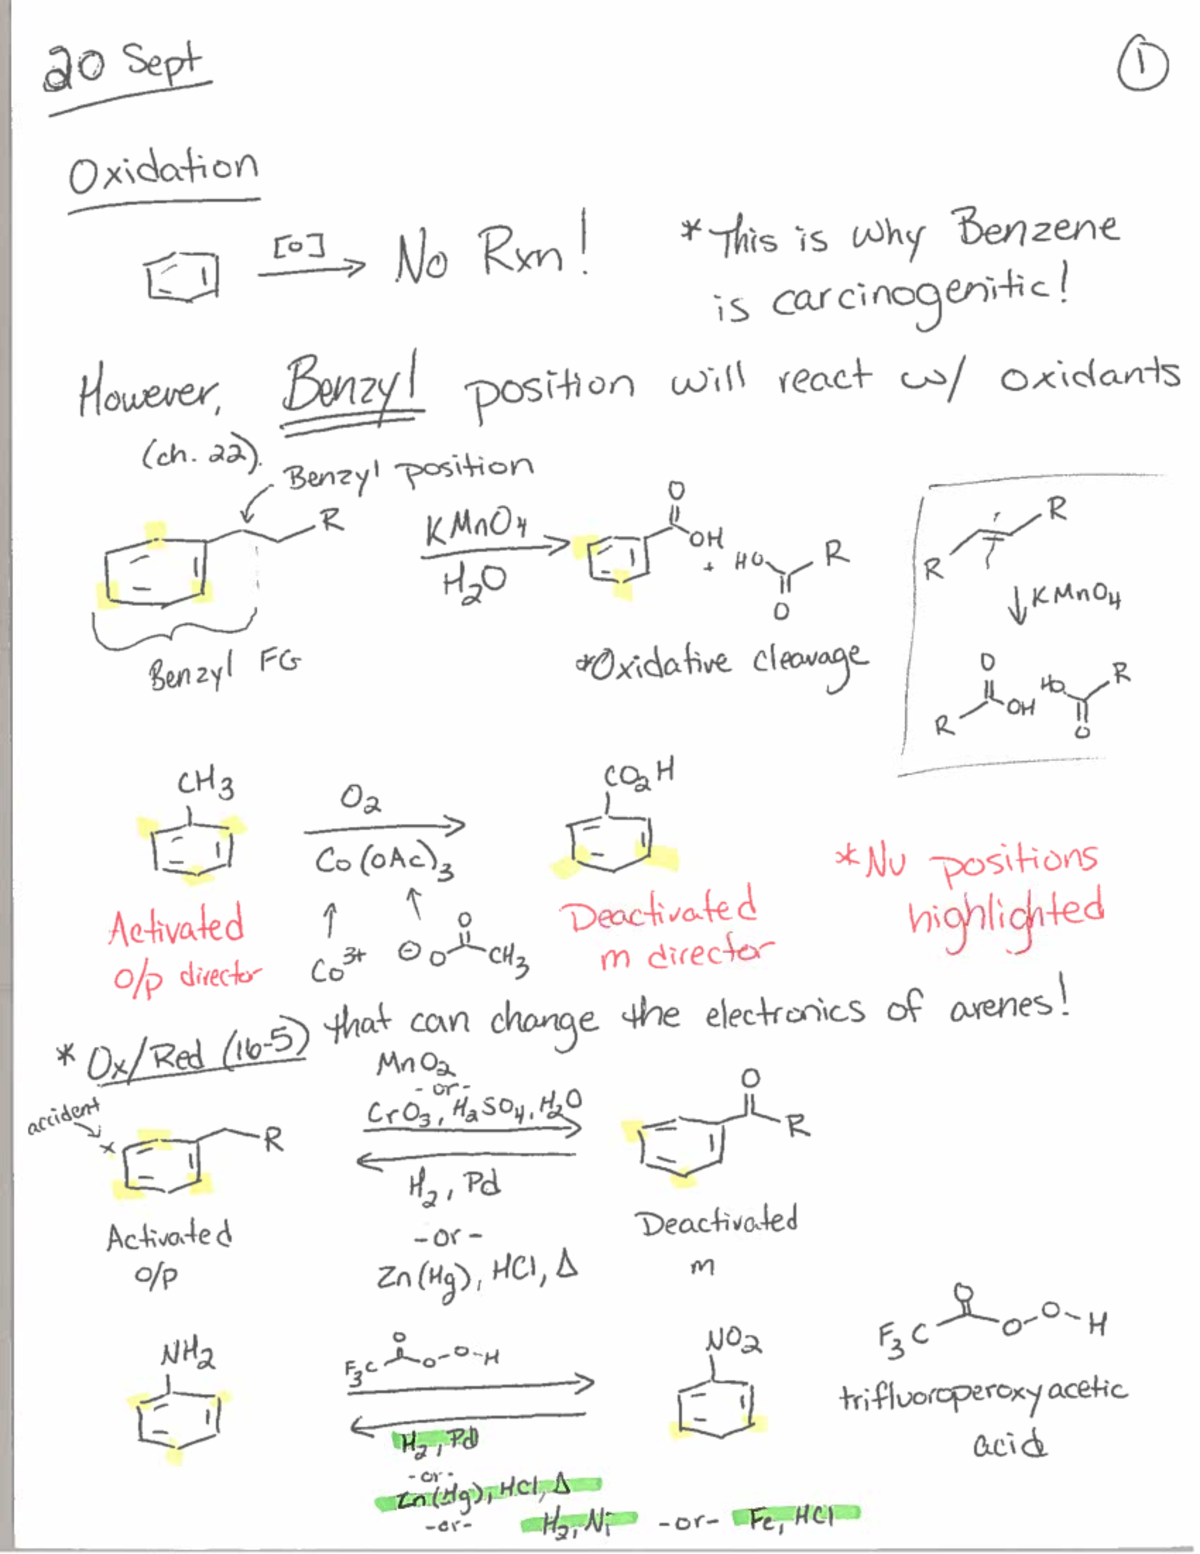 20 Sept
1
Oxidation
[O]
No Rxn!
*This is why Benzene
is carcinogenitic!
However, Benzyl position will react w/ oxidants
(ch. 22).
Benzyl position
R
KMnO4
H2O
O
OH
+
HO
R
O
Benzyl FG
*Oxidative cleavage
R
R
KMnO4
O
R
OH
HO
R
O
CH3
O2
Co(OAc)3
CO2H
*Nu positions
highlighted
Activated
o/p director
Co3+
⊖O
O
CH3
Deactivated
m director
*Ox/Red (16-5) that can change the electronics of arenes!
accident
x
R
MnO2
-or-
CrO3, H2SO4, H2O
H2, Pd
-or-
Zn(Hg), HCl, Δ
O
R
Activated
o/p
Deactivated
m
NH2
F3C
O
O-O-H
H2, Pd
-or-
Zn(Hg), HCl, Δ
-or-
H2, Ni -or- Fe, HCl
NO2
F3C
O
O-O-H
trifluoroperoxyacetic
acid